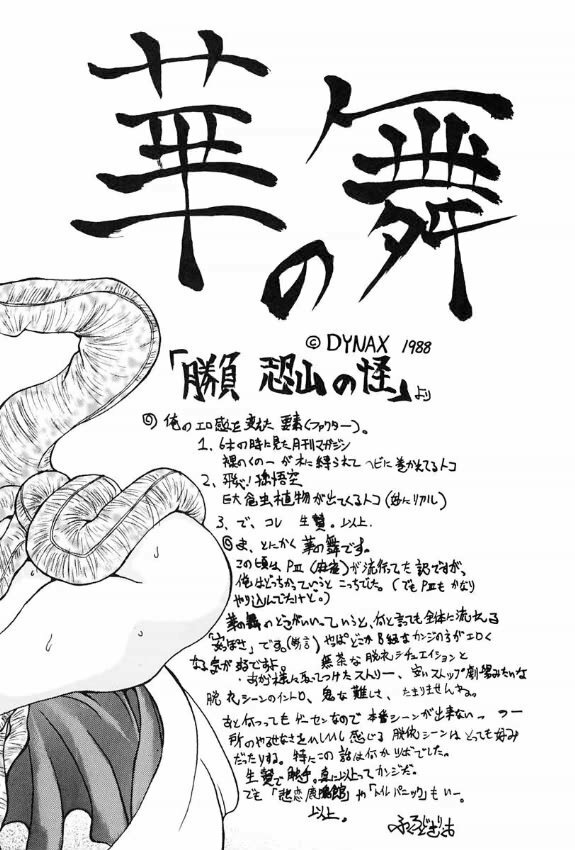 華の舞
© DYNAX 1988
「勝負 恐山の怪」より
◎ 俺のエロ感を変えた要素(ファクター)。
1、6才の時に見た月刊マガジン
裸のくの一が木に縛られてヘビに巻かれてるトコ
2、飛べ!孫悟空
巨大食虫植物が出てくるトコ(妙にリアル)
3、で、コレ 生贄。以上.
◎ま、とにかく 華の舞です。
この頃はPⅢ(麻雀)が流行してた訳ですが、
俺はどっちかっていうとこっちでした。(でもPⅢもかなり
やり込んでたけど。)
華の舞のどこがいいっていうと、何と言っても全体に流れる
です。(断言)やっぱどこかB級なカンジの方がエロく
なる気が好ですよ。 無茶な脱衣シチュエイションと
取ってつけたストリー、安いストップ劇場みたいな
脱衣シーンのイントロ、鬼な難しさ、たまりませんなる。
あと何つってもゲーセンなので本番シーンが出来ないっつー
所のやるせなさをひしひし感じる脱衣シーンはとっても好み
だったりする。特にこの話は何かりばでした。
生贄で触手。真に以上ってカンジだ。
でも「悲恋 館」や「トイレパニック」もいー。
以上。
ふくろどぎりお